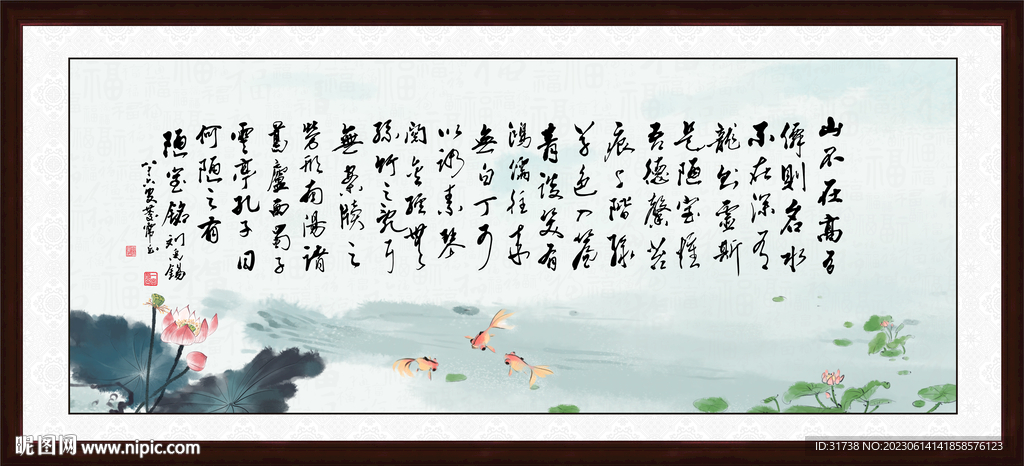 山不在高有
僊則名水
不在深有
龍則靈斯
是陋室惟
吾德馨苔
痕上階綠
草色入簾
青談笑有
鴻儒往來
無白丁可
以調素琴
閱金經無
絲竹之亂耳
無案牘之
勞形南陽諸
葛廬西蜀子
雲亭孔子曰
何陋之有
陋室銘 刘禹锡
昵图网 www.nipic.com
ID:31738 NO:20230614141858576123